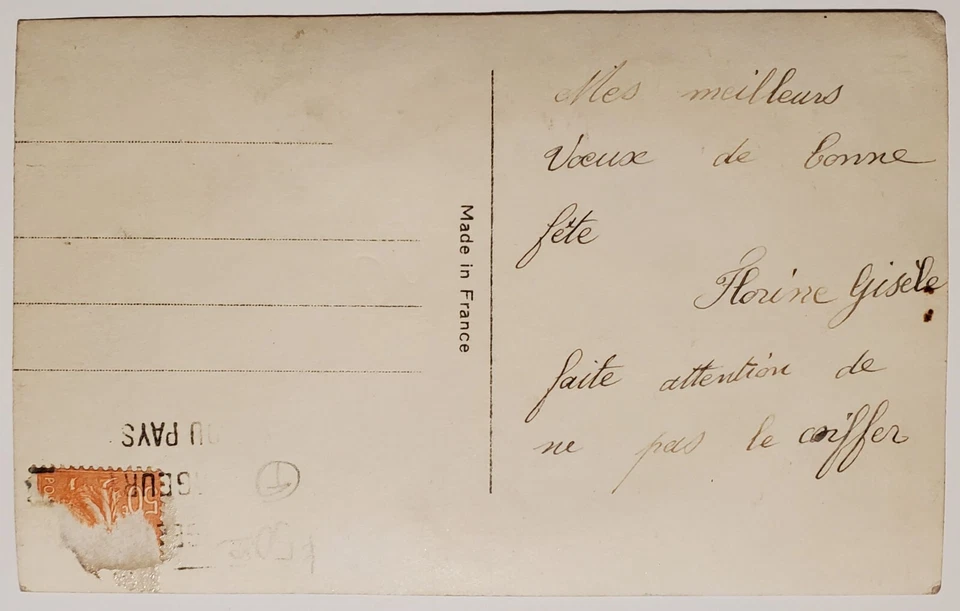 Mes meilleurs
Vœux de bonne
fête
Florine Gisèle
faite attention de
ne pas le coiffer
Made in France
DU PAYS
50c
PO